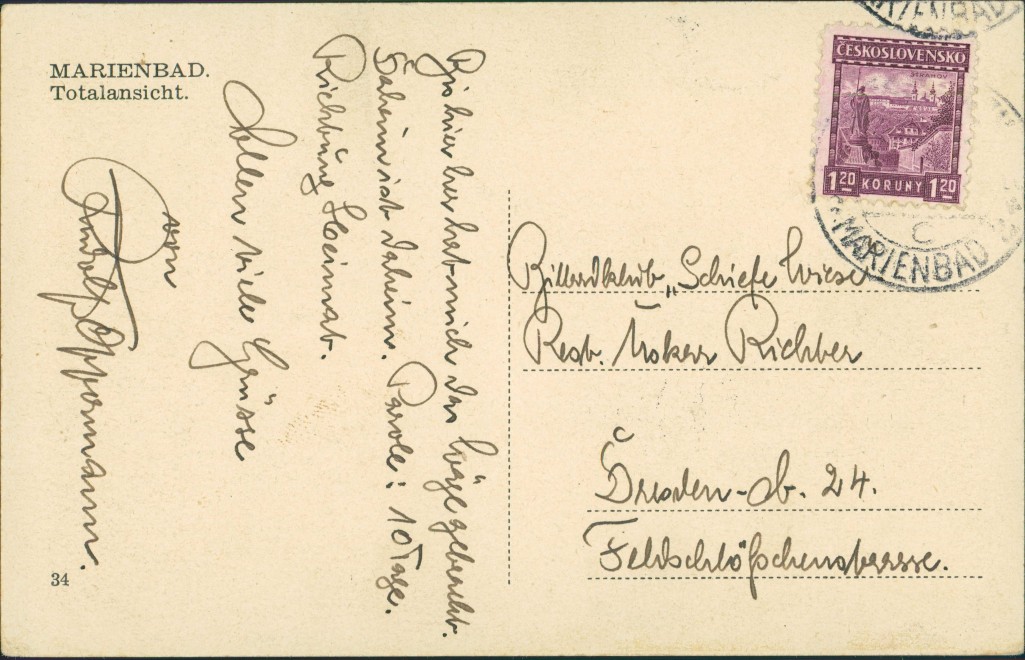 MARIENBAD.
Totalansicht.
Bis hier her hat mich das Wäge gebracht.
Daheim ist daheim. Parole: 10 Tage.
Richtung Heimat.
Allen viele Grüsse
von
Rudolf Oppermann.
34
ČESKOSLOVENSKO
STRAHOV
1.20 KORUNY 1.20
MARIENBAD
C
MARIENBAD
Billardklub „Schiefe Wiese
Rest. Richter
Dresden-A. 24.
Feldschlößchenstrasse.